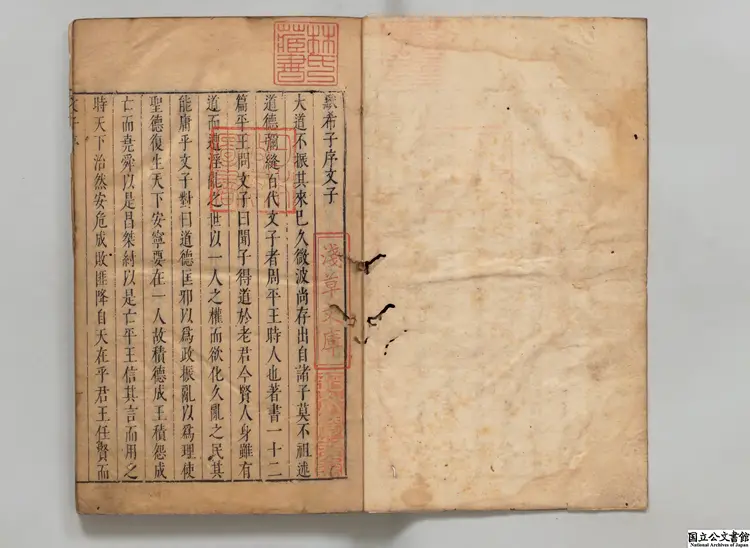 默希子序文子
大道不振其來已久微波尚存出自諸子莫不祖述
道德彌縫百代文子者周平王時人也著書一十二
篇平王問文子曰聞子得道於老君今賢人身雖有
道而遭淫亂之世以一人之權而欲化久亂之民其
能庸乎文子對曰道德匡邪以爲政振亂以爲理使
聖德復生天下安寧要在一人故積德成王積怨成
亡而堯舜以是昌桀紂以是亡平王信其言而用之
時天下治然安危成敗匪降自天在乎君王任賢而
文子序
林氏藏書
淺草文庫
国立公文書館
National Archives of Japan